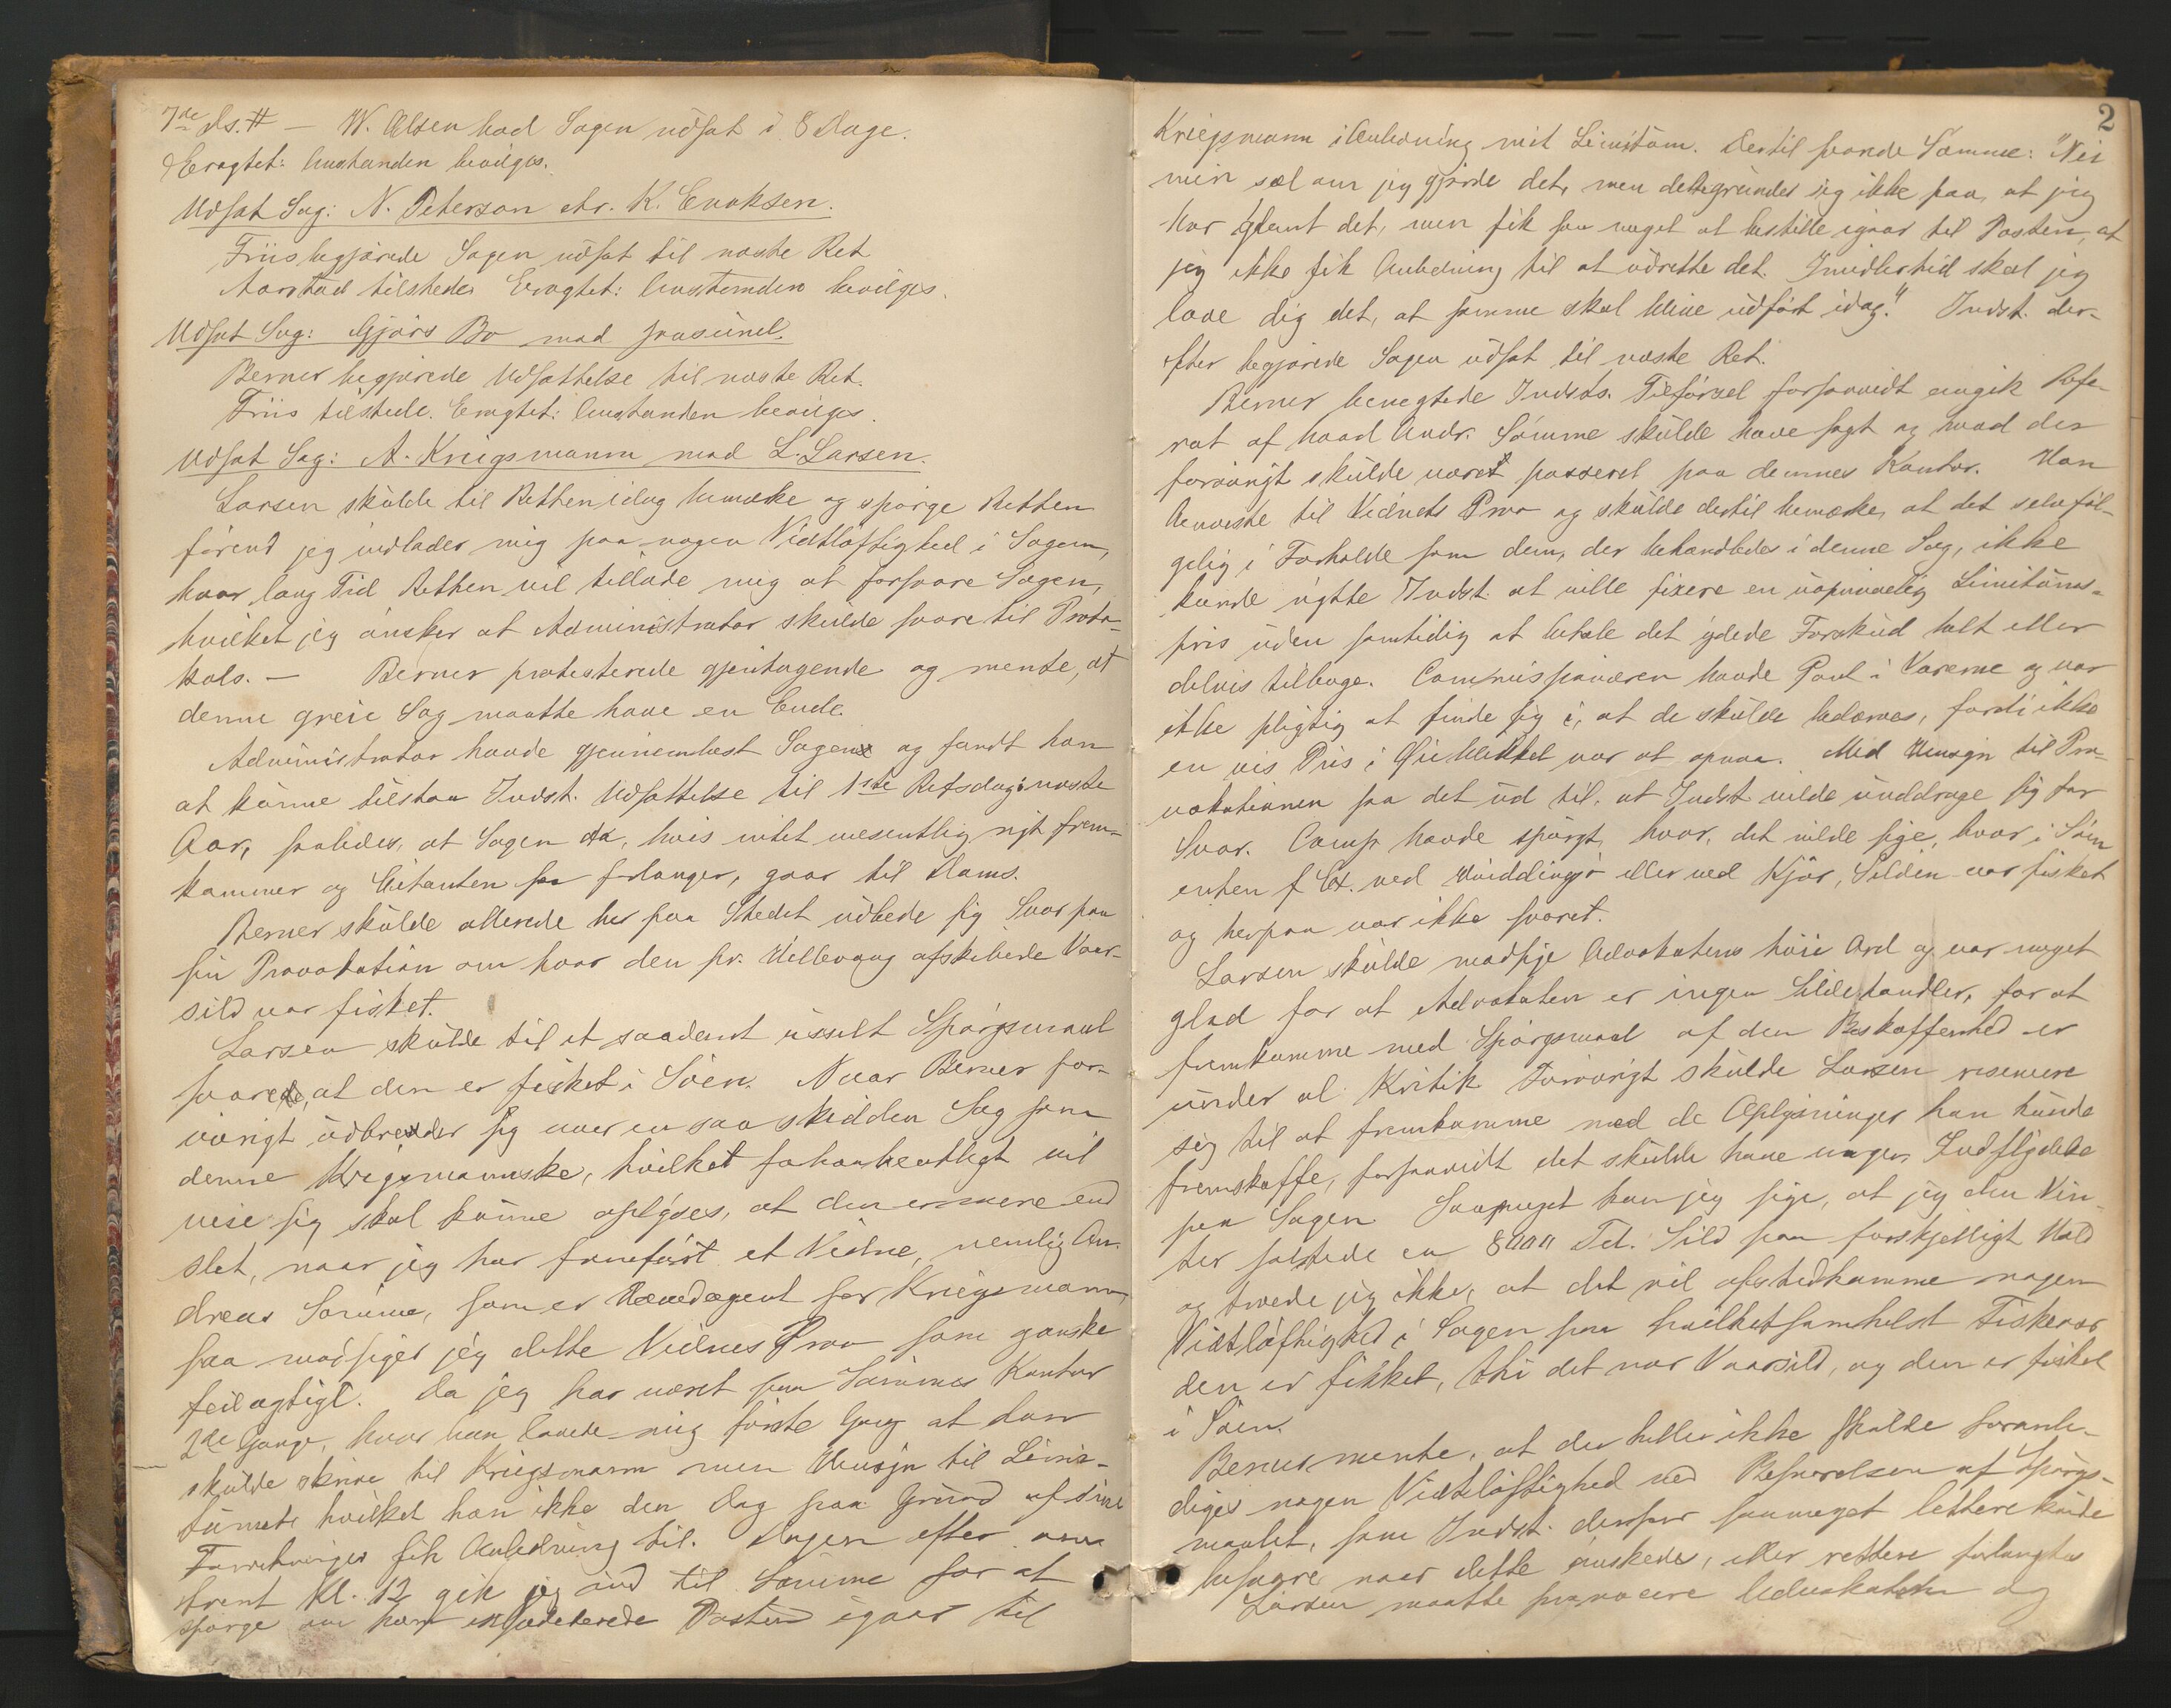 7de ds. # — W. Olsen bad Sagen udsat i 8 Dage.
Eragtet: Anstanden bevilges.
Udsat Sag: N. Peterson ctr. K. Enoksen.
Friis begjærede Sagen udsat til næste Ret
Aarstad tilstede. Eragtet: Anstanden bevilges.
Udsat Sag: Gjørs Bo mod
Berner begjærede Udsættelse til næste Ret.
Friis tilstede. Eragtet: Anstanden bevilges.
Udsat Sag: A. Kriegsmann mod L. Larsen.
Larsen skulde til Retten idag bemærke og spørge Retten
førend jeg indlader mig paa nogen Vidtløftighed i Sagen,
hvor lang Tid Retten vil tillade mig at forsvare Sagen,
hvilket jeg ønsker at Administrator skulde svare til Proto-
kols. — Berner protesterede gjentagende og mente, at
denne greie Sag maatte have en Ende.
Administrator havde gjennemlæst Sagen og fandt han
at kunne tilstaa Indst. Udsættelse til 1ste Retsdag i næste
Aar, saaledes, at Sagen da, hvis intet væsentlig nyt frem-
kommer og Citanten saa forlanger, gaar til Doms.
Berner skulde allerede her paa Stedet udbede sig Svar paa
sin Provokation om hvor den pr. Hillevaag afskibede Vaar-
sild var fisket.
Larsen skulde til et saadant usselt Spørgsmaal
svare, at den er fisket i Søen. Naar Berner for-
øvrigt udbreder sig over en saa skidden Sag som
denne Krigsmannske, hvilket forhaabentligt vil
vise sig skal kunne oplyses, at den er mere end
slet, naar jeg har fremført et Vidne, nemlig An-
dreas Sømme, som er Hovedagent for Kriegsmann,
saa modsiger jeg dette Vidnes Prov som ganske
feilagtigt. Da jeg har været paa Sømmes Kontor
2de Gange, hvor han lovede mig første Gang at han
skulde skrive til Kriegsmann med Hensyn til Limi-
tumets hvilket han ikke den Dag paa Grund af sine
Forretninger fik Anledning til. Dagen efter om-
trent Kl. 12 gik jeg ind til Sømme for at
spørge om han expederede Posten igaar til
2
Kriegsmann i Anledning mit Limitum. Dertil svarede Sømme: "Nei
min sæl om jeg gjorde det, men det begrundes sig ikke paa, at jeg
har glemt det, men fik saa meget at bestille igaar til Posten, at
jeg ikke fik Anledning til at udrette det. Imidlertid skal jeg
love dig det, at samme skal blive udført idag." Indst. der-
efter begjærede Sagen udsat til næste Ret.
Berner benegtede Indsts. Tilførsel forsaavidt angik Refe-
rat af hvad Andr. Sømme skulde have sagt og hvad der
forøvrigt skulde været passeret paa dennes Kontor. Han
henviste til Vidnets Prov og skulde dertil bemærke, at det selvføl-
gelig i Forholde som dem, der behandledes i denne Sag, ikke
kunde nytte Indst. at ville fixere en uopnaaelig Limitums-
pris uden samtidig at betale det ydede Forskud helt eller
delvis tilbage. Commissionæren havde Pant i Varerne og var
ikke pligtig at finde sig i, at de skulde bedærves, fordi ikke
en vis Pris i Øieblikket var at opnaa. Med Hensyn til Pro-
vokationen saa det ud til, at Indst. vilde unddrage sig for
Svar. Comp. havde spørgt, hvor, det vilde sige, hvor i Søen
enten f. Ex. ved Hviddingsø eller ved Kjør, Silden var fisket
og herpaa var ikke svaret.
Larsen skulde modsige Advokatens høie Ord og var meget
glad for at Advokaten er ingen Sildehandler, for at
fremkomme med Spørgsmaal af den Beskaffenhed er
under al Kritik. Forøvrigt skulde Larsen reservere
sig til at fremkomme med de Oplysninger han kunde
fremskaffe, forsaavidt det skulde have nogen Indflydelse
paa Sagen. Saameget kan jeg sige, at jeg den Vin-
ter saltede ca 8000 Td. Sild paa forskjelligt Hold
og troede jeg ikke, at det vil afstedkomme nogen
Vidtløftighed i Sagen paa hvilketsomhelst Fiskevær
den er fisket, thi det var Vaarsild, og den er fisket
i Søen.
Berner mente, at der heller ikke skulde foranle-
diges nogen Vidtløftighed ved Besvarelsen af Spørgs-
maalet, som Indst. derfor saameget lettere kunde
besvare naar dette ønskedes, eller rettere forlangtes
Larsen maatte provocere Advokaten og